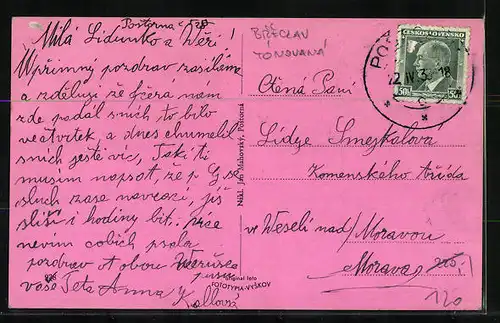 Poštorna č 528
Milá Lidunko a Věři!
Upřimný pozdrav zasíláme
a zděluji že včera nam
zde padál sních to bilo
ve čtvrtek a dnes chumelil
sních ještě víc, Také ti
musim napsat, že p
sluch zase navrací, již
sliší i hodiny bit. více
nevim cobich psala
pozdrav A obou
vaše Teta Anna Kollová
Nákl. Jan Mahovský, Poštorná
Original foto
FOTOTYPIA-VYŠKOV
BŘECLAV
TÓNOVANÁ
ČESKOSLOVENSKO
50h 50h
Ctěná Paní
Lidye Smejkalová
Komenského třída
ve Veselí nad/Moravou
Morava
120